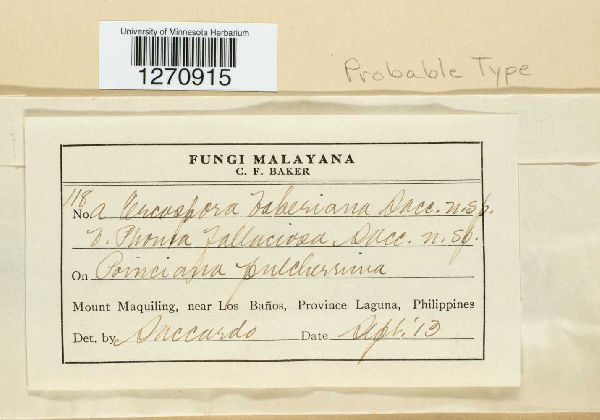 University of Minnesota Herbarium
1270915
Probable Type
FUNGI MALAYANA
C. F. BAKER
118
No. a Cercospora Bakeriana Sacc. n. sp.
b. Phoma fallaciosa, Sacc. n. sp.
On Poinciana pulcherrima
Mount Maquiling, near Los Baños, Province Laguna, Philippines
Det. by Saccardo Date Sept. '13